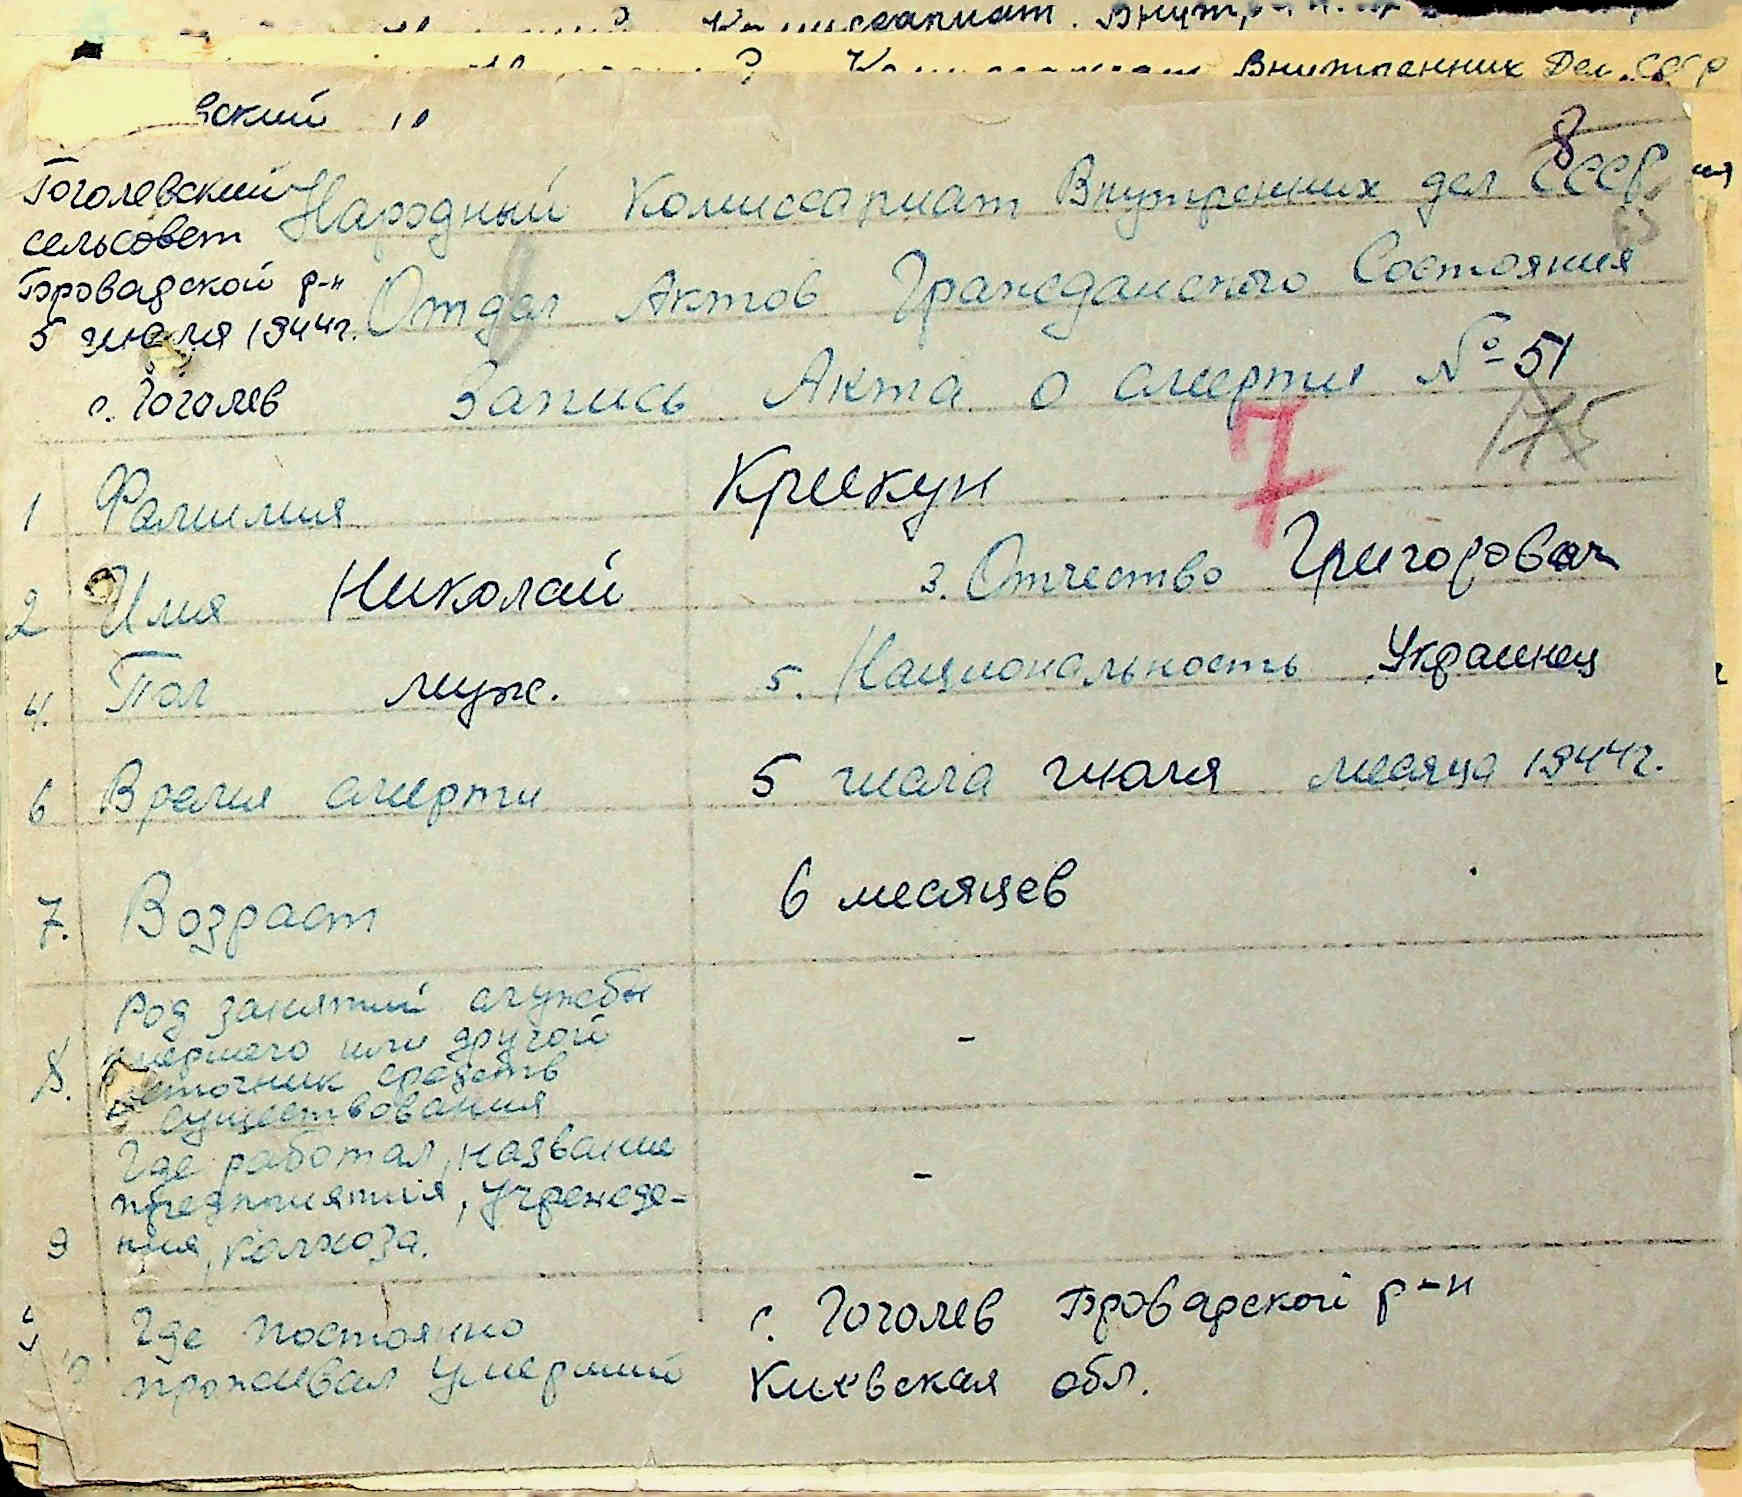 Комиссариат. Внутр
Внутренних Дел. СССР
вский
8
Гоголевский
сельсовет
Броварской р-н
5 июля 1944г.
с. Гоголев
Народный Комиссариат Внутренних дел СССР
Отдел Актов Гражданского Состояния
Запись Акта о смерти № 51
175
7
1 Фамилия Крикун
2 Имя Николай 3. Отчество Григорович
4. Пол муж. 5. Национальность Украинец
6 Время смерти 5 числа июля месяца 1944г.
7. Возраст 6 месяцев
Род занятий службы
умершего или другой
8. источник средств -
существования
Где работал, название
предприятия, учрежде- -
9 ния, колхоза.
Где постоянно с. Гоголев Броварской р-н
проживал умерший Киевская обл.